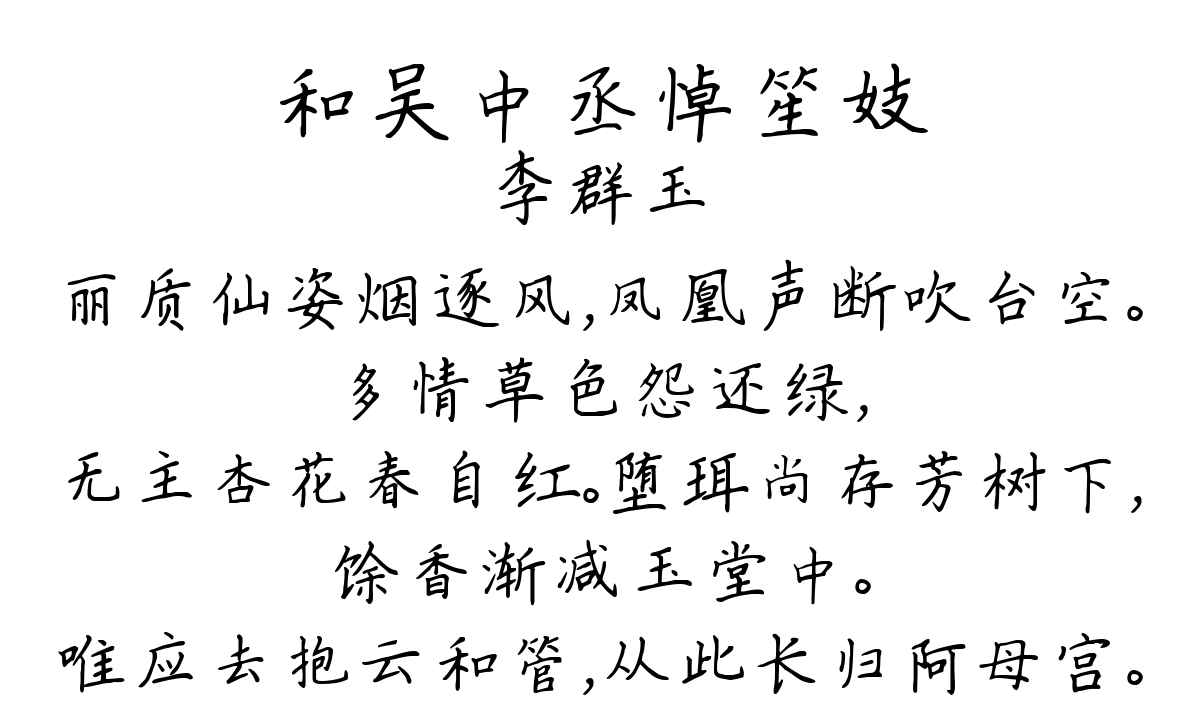 和吴中丞悼笙妓
李群玉
丽质仙姿烟逐风,凤凰声断吹台空。
多情草色怨还绿,
无主杏花春自红。堕珥尚存芳树下,
馀香渐减玉堂中。
唯应去抱云和管,从此长归阿母宫。